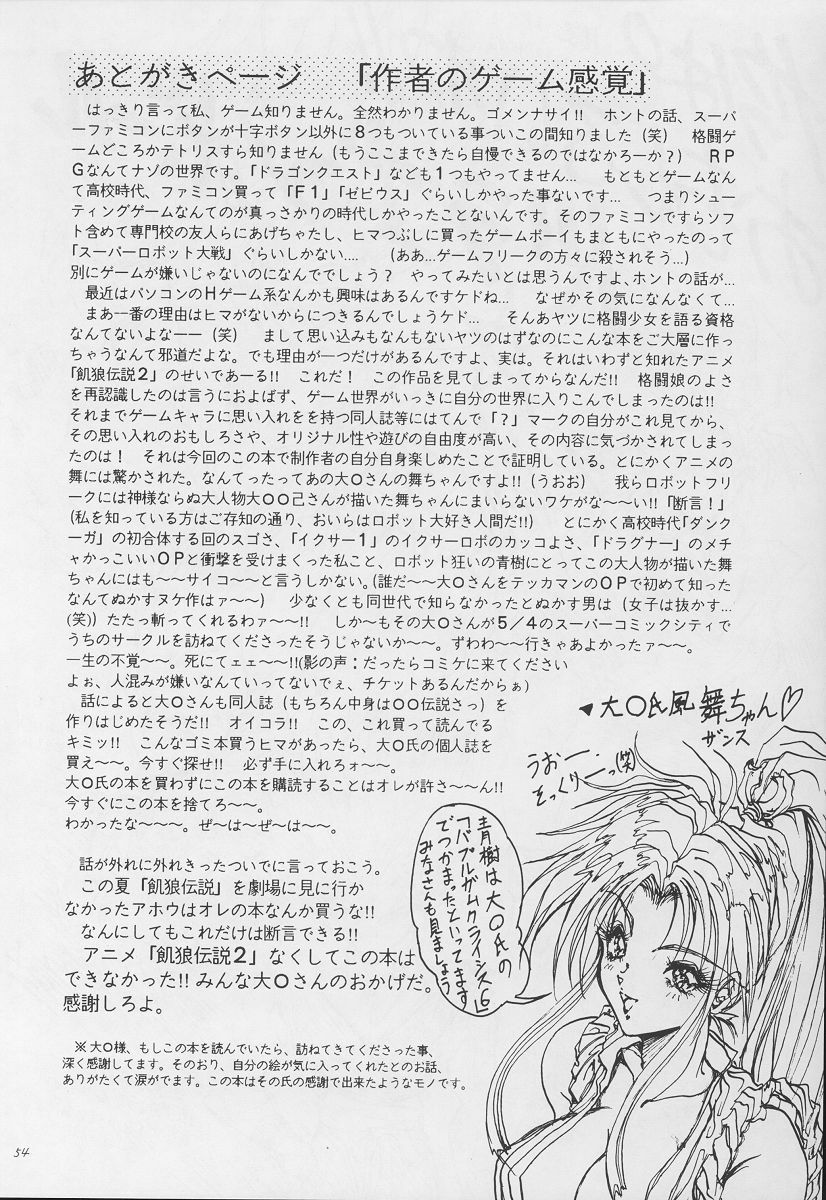 あとがきページ 「作者のゲーム感覚」
はっきり言って私、ゲーム知りません。全然わかりません。ゴメンナサイ!! ホントの話、スーパ
ーファミコンにボタンが十字ボタン以外に8つもついている事ついこの間知りました(笑) 格闘ゲ
ームどころかテトリスすら知りません(もうここまできたら自慢できるのではなかろーか?) RP
Gなんてナゾの世界です。「ドラゴンクエスト」なども1つもやってません… もともとゲームなん
て高校時代、ファミコン買って「F1」「ゼビウス」ぐらいしかやった事ないです… つまりシュー
ティングゲームなんてのが真っさかりの時代しかやったことないんです。そのファミコンですらソフ
ト含めて専門校の友人らにあげちゃたし、ヒマつぶしに買ったゲームボーイもまともにやったのって
「スーパーロボット大戦」ぐらいしかない…. (ああ…ゲームフリークの方々に殺されそう…)
別にゲームが嫌いじゃないのになんででしょう? やってみたいとは思うんですよ、ホントの話が…
最近はパソコンのHゲーム系なんかも興味はあるんですケドね… なぜかその気になんなくて…
まあ一番の理由はヒマがないからにつきるんでしょうケド… そんあヤツに格闘少女を語る資格
なんてないよなーー(笑) まして思い込みもなんもないヤツのはずなのにこんな本をご大層に作っ
ちゃうなんて邪道だよな。でも理由が一つだけがあるんですよ、実は。それはいわずと知れたアニメ
「餓狼伝説2」のせいであーる!! これだ! この作品を見てしまってからなんだ!! 格闘娘のよさ
を再認識したのは言うにおよばず、ゲーム世界がいっきに自分の世界に入りこんでしまったのは!!
それまでゲームキャラに思い入れをを持つ同人誌等にはてんで「?」マークの自分がこれ見てから、
その思い入れのおもしろさや、オリジナル性や遊びの自由度が高い、その内容に気づかされてしまっ
たのは! それは今回のこの本で制作者の自分自身楽しめたことで証明している。とにかくアニメの
舞には驚かされた。なんてったってあの大○さんの舞ちゃんですよ!!(うおお) 我らロボットフリ
ークには神様ならぬ大人物大○○己さんが描いた舞ちゃんにまいらないワケがな〜〜い!!「断言!」
(私を知っている方はご存知の通り、おいらはロボット大好き人間だ!!) とにかく高校時代「ダンク
ーガ」の初合体する回のスゴさ、「イクサー1」のイクサーロボのカッコよさ、「ドラグナー」のメチ
ャかっこいいOPと衝撃を受けまくった私こと、ロボット狂いの青樹にとってこの大人物が描いた舞
ちゃんにはも〜〜サイコ〜〜と言うしかない。(誰だ〜〜大○さんをテッカマンのOPで初めて知った
なんてぬかすヌケ作はァ〜〜) 少なくとも同世代で知らなかったとぬかす男は(女子は抜かす…
(笑))たたっ斬ってくれるわァ〜〜!! しか〜もその大○さんが5/4のスーパーコミックシティで
うちのサークルを訪ねてくださったそうじゃないか〜〜。ずわわ〜〜行きゃあよかったァ〜〜。
一生の不覚〜〜。死にてェェ〜〜!!(影の声:だったらコミケに来てください
よぉ、人混みが嫌いなんていってないでぇ、チケットあるんだからぁ)
話によると大○さんも同人誌(もちろん中身は○○伝説さっ)を
作りはじめたそうだ!! オイコラ!! この、これ買って読んでる
キミッ!! こんなゴミ本買うヒマがあったら、大○氏の個人誌を
買え〜〜。今すぐ探せ!! 必ず手に入れろォ〜〜。
大○氏の本を買わずにこの本を購読することはオレが許さ〜〜ん!!
今すぐにこの本を捨てろ〜〜。
わかったな〜〜〜。ぜ〜は〜ぜ〜は〜〜。
話が外れに外れきったついでに言っておこう。
この夏「餓狼伝説」を劇場に見に行か
なかったアホウはオレの本なんか買うな!!
なんにしてもこれだけは断言できる!!
アニメ「餓狼伝説2」なくしてこの本は
できなかった!!みんな大○さんのおかげだ。
感謝しろよ。
※大○様、もしこの本を読んでいたら、訪ねてきてくださった事、
深く感謝してます。そのおり、自分の絵が気に入ってくれたとのお話、
ありがたくて涙がでます。この本はその氏の感謝で出来たようなモノです。
▼大○氏風舞ちゃん♡
ザンス
うおー
そっくりーっ(笑)
青樹は大○氏の
「バブルガムクライシス6」
でつかまったといってます
みなさんも見ましょう
54